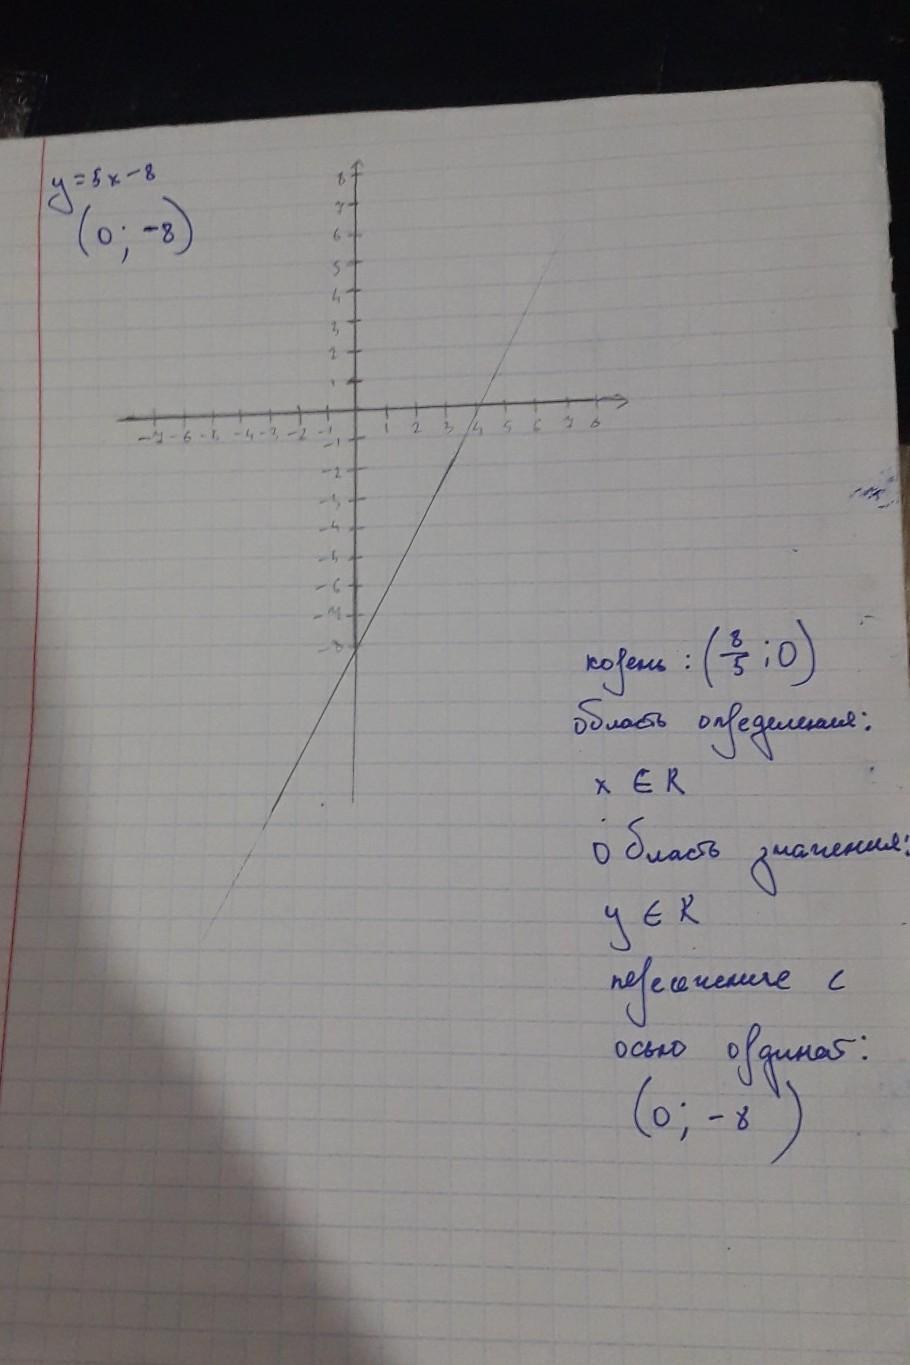 y = 5x - 8
(0; -8)
8
7
6
5
4
3
2
1
-7 -6 -5 -4 -3 -2 -1 1 2 3 4 5 6 7 8
-1
-2
-3
-4
-5
-6
-7
-8
корень : (8/5 ; 0)
область определения:
x ∈ R
область значения:
y ∈ R
пересечение с
осью ординат:
(0; -8)